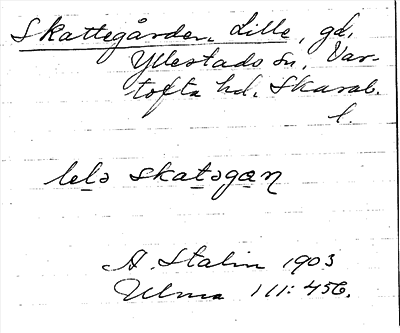 Skattegården, Lille, gd,
Yllestads sn, Var-
tofta hd. Skarab.
l.
lelə skatəgaɳ
A. Stalin 1903
Ulma 111: 456.